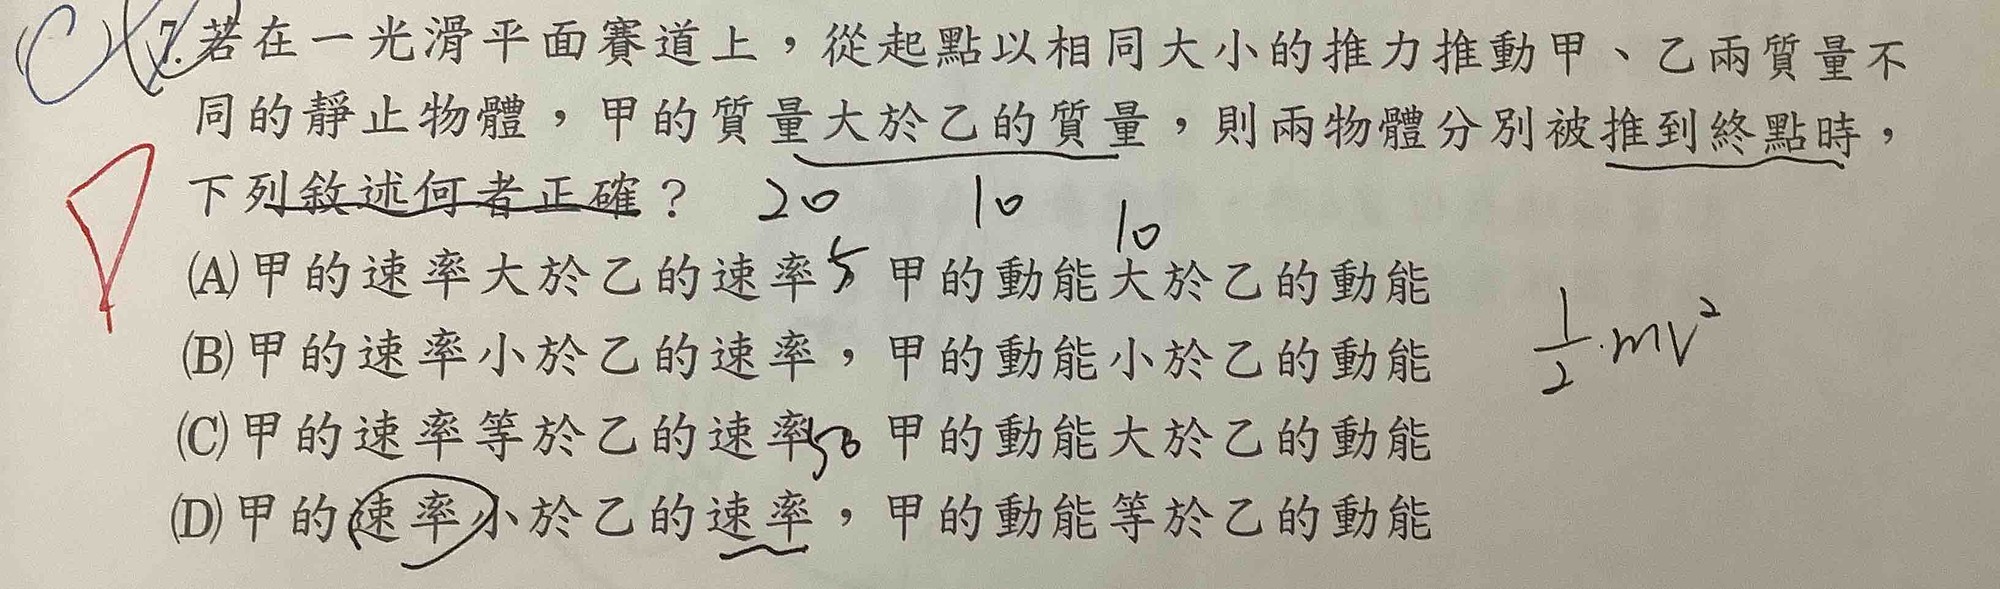 (C) 7.若在一光滑平面賽道上，從起點以相同大小的推力推動甲、乙兩質量不
同的靜止物體，甲的質量大於乙的質量，則兩物體分別被推到終點時，
下列敘述何者正確？ 20 10
10
(A)甲的速率大於乙的速率 5 甲的動能大於乙的動能
(B)甲的速率小於乙的速率，甲的動能小於乙的動能
1/2·mv²
(C)甲的速率等於乙的速率 50 甲的動能大於乙的動能
(D)甲的速率小於乙的速率，甲的動能等於乙的動能